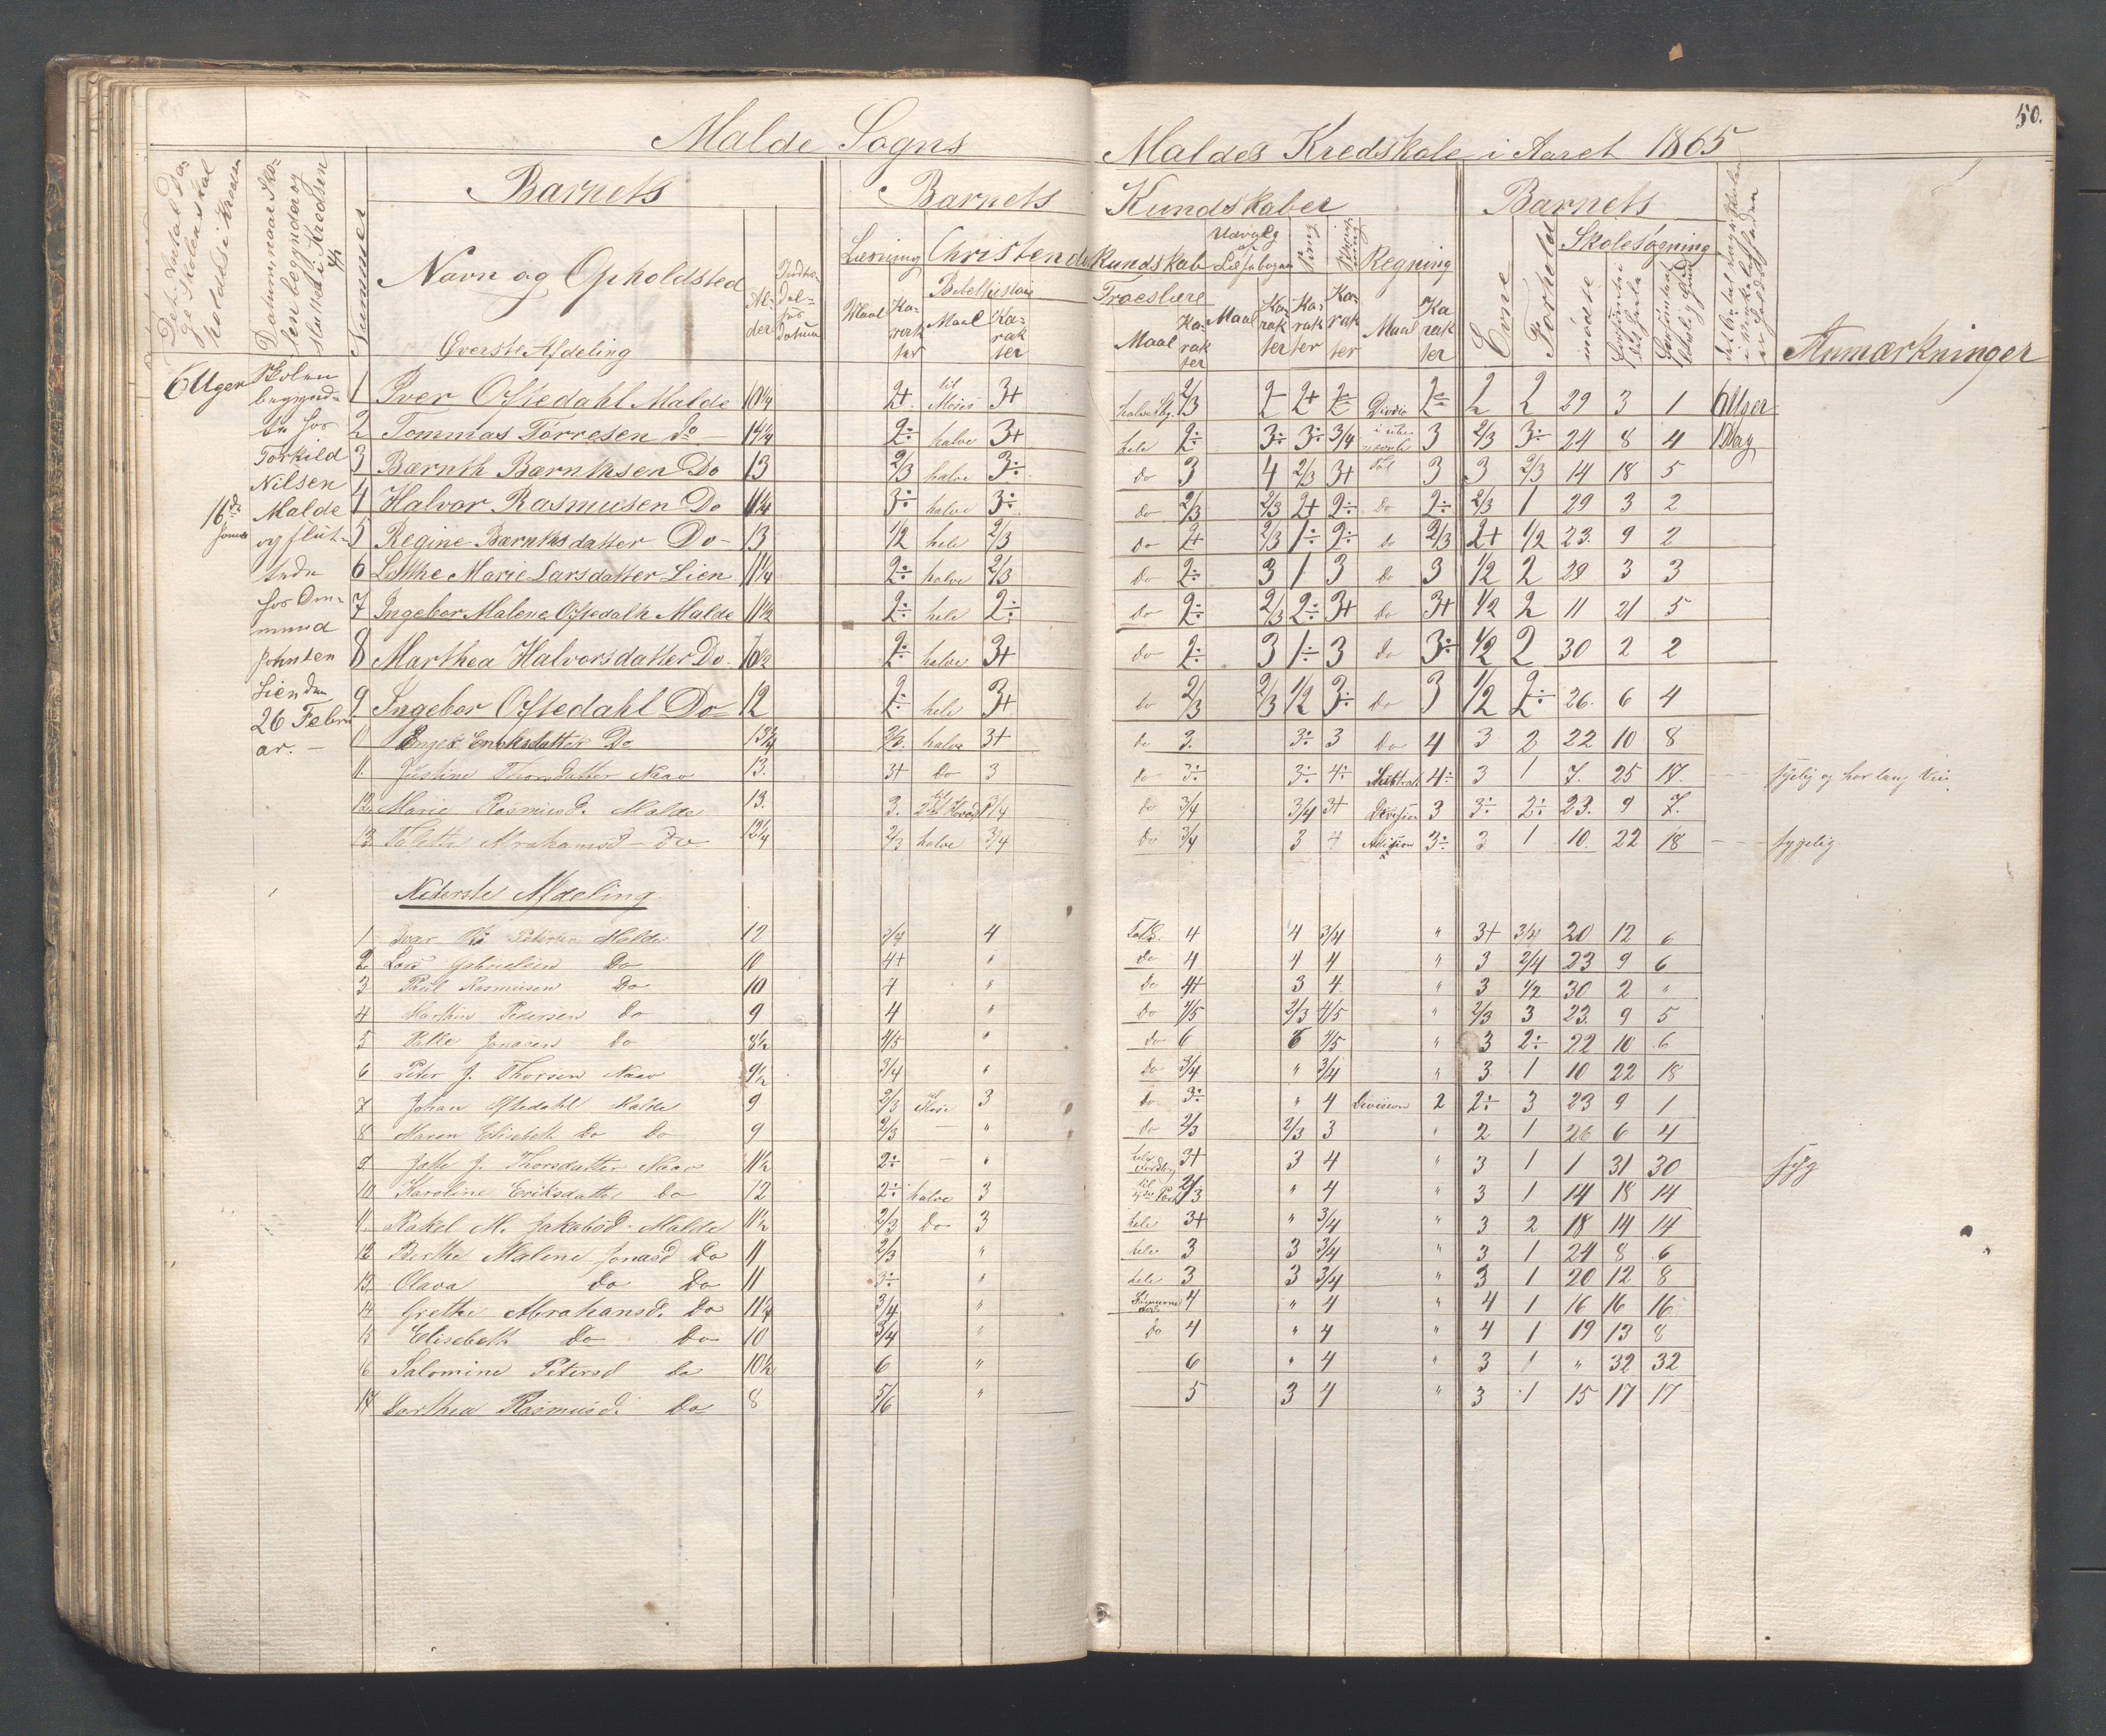 50.
Malde Sogns Maldes Kredskole i Aaret 1865
Barnets Barnets Kundskaber Barnets
Det Antal Dage Skolen skal holdes i Kredsen
Datum naar Skolen begynder og sluttes i Kredsen
Nummer
Navn og Opholdsted
Alder
Læsning Christendomskundskab Udvalg af Læsebogen Sang Skrivning Regning Evne Forhold Skolesøgning
Bibelhistorie Troeslære
Maal Karakter Maal Karakter Maal Karakter Maal Karakter Karakter Karakter Maal Karakter mødte forsømte det hele forsømt af lovlig Grund
Anmærkninger
Øverste Afdeling
6 Uger
Skolen begyndte hos Torkild Nilsen Malde 16de og sluttede hos Johnsen Lien den 26 Februar. –
1 Iver Oftedahl Malde 10 1/4 2+ til Moses 3+ 2/3 2 2+ 2= 2= 2 2 29 3 1 6 Uger
2 Tommas Tørresen Do 14 1/4 2÷ halve 3+ hele 2÷ 3÷ 3÷ 3/4 3 2/3 3÷ 24 8 4 1 Dag
3 Bærnth Barnthsen Do 13 2/3 halve 3÷ do 3 4 2/3 3+ 3 3 2/3 14 18 5
4 Halvor Rasmusen Do 11 1/4 3÷ halve 3÷ do 2/3 2/3 2+ 2÷ Do 2÷ 2/3 1 29 3 2
5 Regine Bærnthsdatter Do – 13 1/2 hele 2/3 do 2+ 2/3 1÷ 2÷ do 2/3 2+ 1/2 23. 9 2
6 Lothe Marie Larsdatter Lien 11 1/4 2÷ halve 2/3 do 2÷ 3 1 3 do 3 1/2 2 29 3 3
7 Ingebor Malene Oftedalh Malde 11 1/2 2÷ hele 2÷ do 2÷ 2/3 2÷ 3+ do 3+ 1/2 2 11 21 5
8 Marthea Halvorsdatter Do. 10 1/2 2÷ halve 3+ do 2÷ 3 1÷ 3 do 3÷ 1/2 2 30 2 2
9 Ingebor Oftedahl Do 12 2÷ hele 3+ do 2/3 2/3 1/2 3÷ do 3 1/2 2÷ 26. 6 4
10 Eriksdatter Do 13 3/4 2/3. halve 3+ do 3. 3÷ 3 Do 4 3 2 22 10 8
11. Justine Thorsdatter Naav 13. 3+ Do 3 do 3÷ 3÷ 4÷ Subtrak 4÷ 3 1 7. 25 17. sygelig og har lang Vei
12. Marie Rasmusd. Malde 13. 3. 3/4 do 3/4 3/4 3+ Division 3 3÷ 2÷ 23. 9 7.
13 Tolette Abrahamsd – Do 12 1/4 2/3 halve 3/4 Do 3/4 3 4 Adision 3÷ 3 1 10. 22 18 sygelig
Nederste Afdeling
1 Ivar Petersen Malde 12 3/4 4 4 4 3/4 " 3+ 3/4 20 12 6
2 Lars Gabrielsen Do 10 4+ " do 4 4 4 " 3 2/4 23 9 6
3 Paul Rasmusen Do 10 4 " Do 4+ 3 4 " 3 1/2 30 2 "
4 Marthin Pedersen do 9 4 " Do 4/5 2/3 4/5 " 2/3 3 23. 9 5
5 Jonasen do 8 1/2 4/5 " do 6 6 4/5 " 3 2÷ 22 10 6
6 Peter J. Thorsen Naav 9 1/2 3/4 " Do 3/4 " 3/4 " 3 1 10 22 18
7 Johan Oftedahl Malde 9 2/3 3 do 3÷ " 4 Division 2 2÷ 3 23 9 1
8 Maren Elisebeth Do Do 9 2/3 – " do 2/3 2/3 3 " 2 1 26 6 4
9 J. Thorsdatter Naav 11 1/2 2÷ – " hele 3+ 3 4 " 3 1 1 31 30 syg
10 Karoline Eriksdatter Do 12 2÷ halve 3 2/3 " 4 " 3 1 14 18 14
11. Rakel M. Jakobsd. Malde 11 1/2 2/3 Do 3 hele 3+ " 3/4 " 3 2 18 14 14
12 Berthe Malene Jonasd Do 11 2/3 " hele 3 3 3/4 " 3 1 24 8 6
13 Olava Do Do 11 3÷ " hele 3 3 3/4 " 3 1 20 12 8
14 Grethe Abrahamsd. Do 11 1/4 3/4 " 4 " 4 " 4 1 16 16 16
15 Elisebeth Do Do 10 3/4 " Do 4 " 4 " 4 1 19 13 8
16 Salomine Petersd Do 10 1/2 6 " 6 " 4 " 3 1 " 32 32
17 Dorthea Rasmusd. Do 8 5/6 " 5 3 4 " 3 1 15 17 17